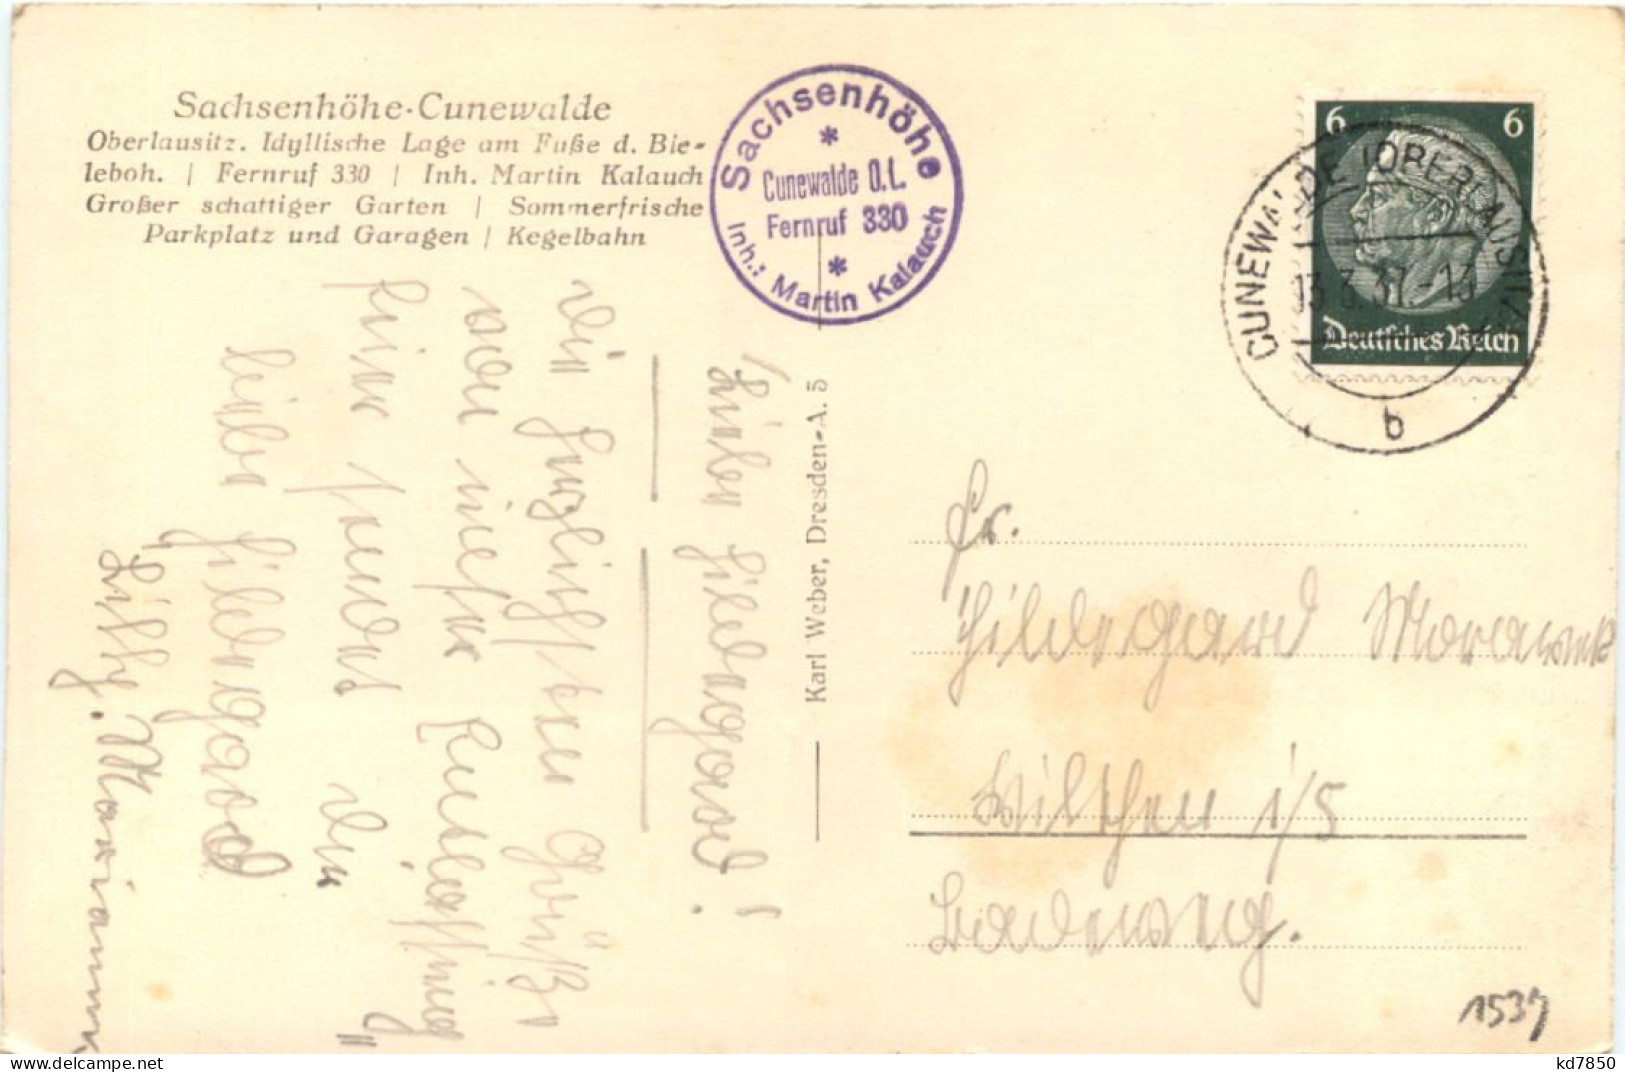 Sachsenhöhe-Cunewalde
Oberlausitz. Idyllische Lage am Fuße d. Bie-
leboh. | Fernruf 330 | Inh. Martin Kalauch
Großer schattiger Garten | Sommerfrische
Parkplatz und Garagen | Kegelbahn
Sachsenhöhe
*
Cunewalde O.L.
Fernruf 330
*
Inh.: Martin Kalauch
6 6
Deutsches Reich
CUNEWALDE (OBERLAUSITZ)
13.3.37.-13
b
Karl Weber, Dresden-A. 5
Liebe Hildegard!
Die herzlichsten Grüße
von meiner Entlassung
liebe Hildegard
Fr.
Hildegard Morawek
Wilthen i/S
Badeweg.
1537
kd7850